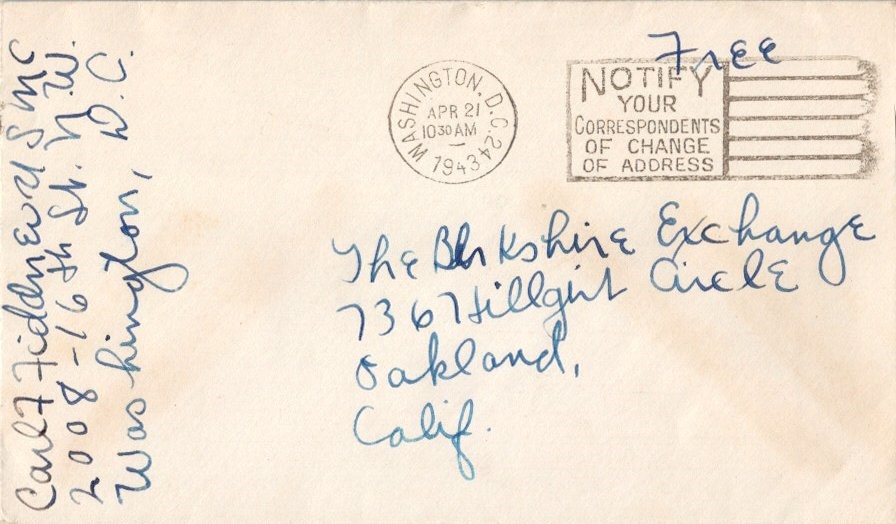 Free
WASHINGTON, D.C. 24
APR 21
10 30 AM
1943
NOTIFY
YOUR
CORRESPONDENTS
OF CHANGE
OF ADDRESS
The Berkshire Exchange
7367 Hillgirt Circle
Oakland,
Calif.
Carl F USMC
2008-16th St. N.W.
Washington, D.C.